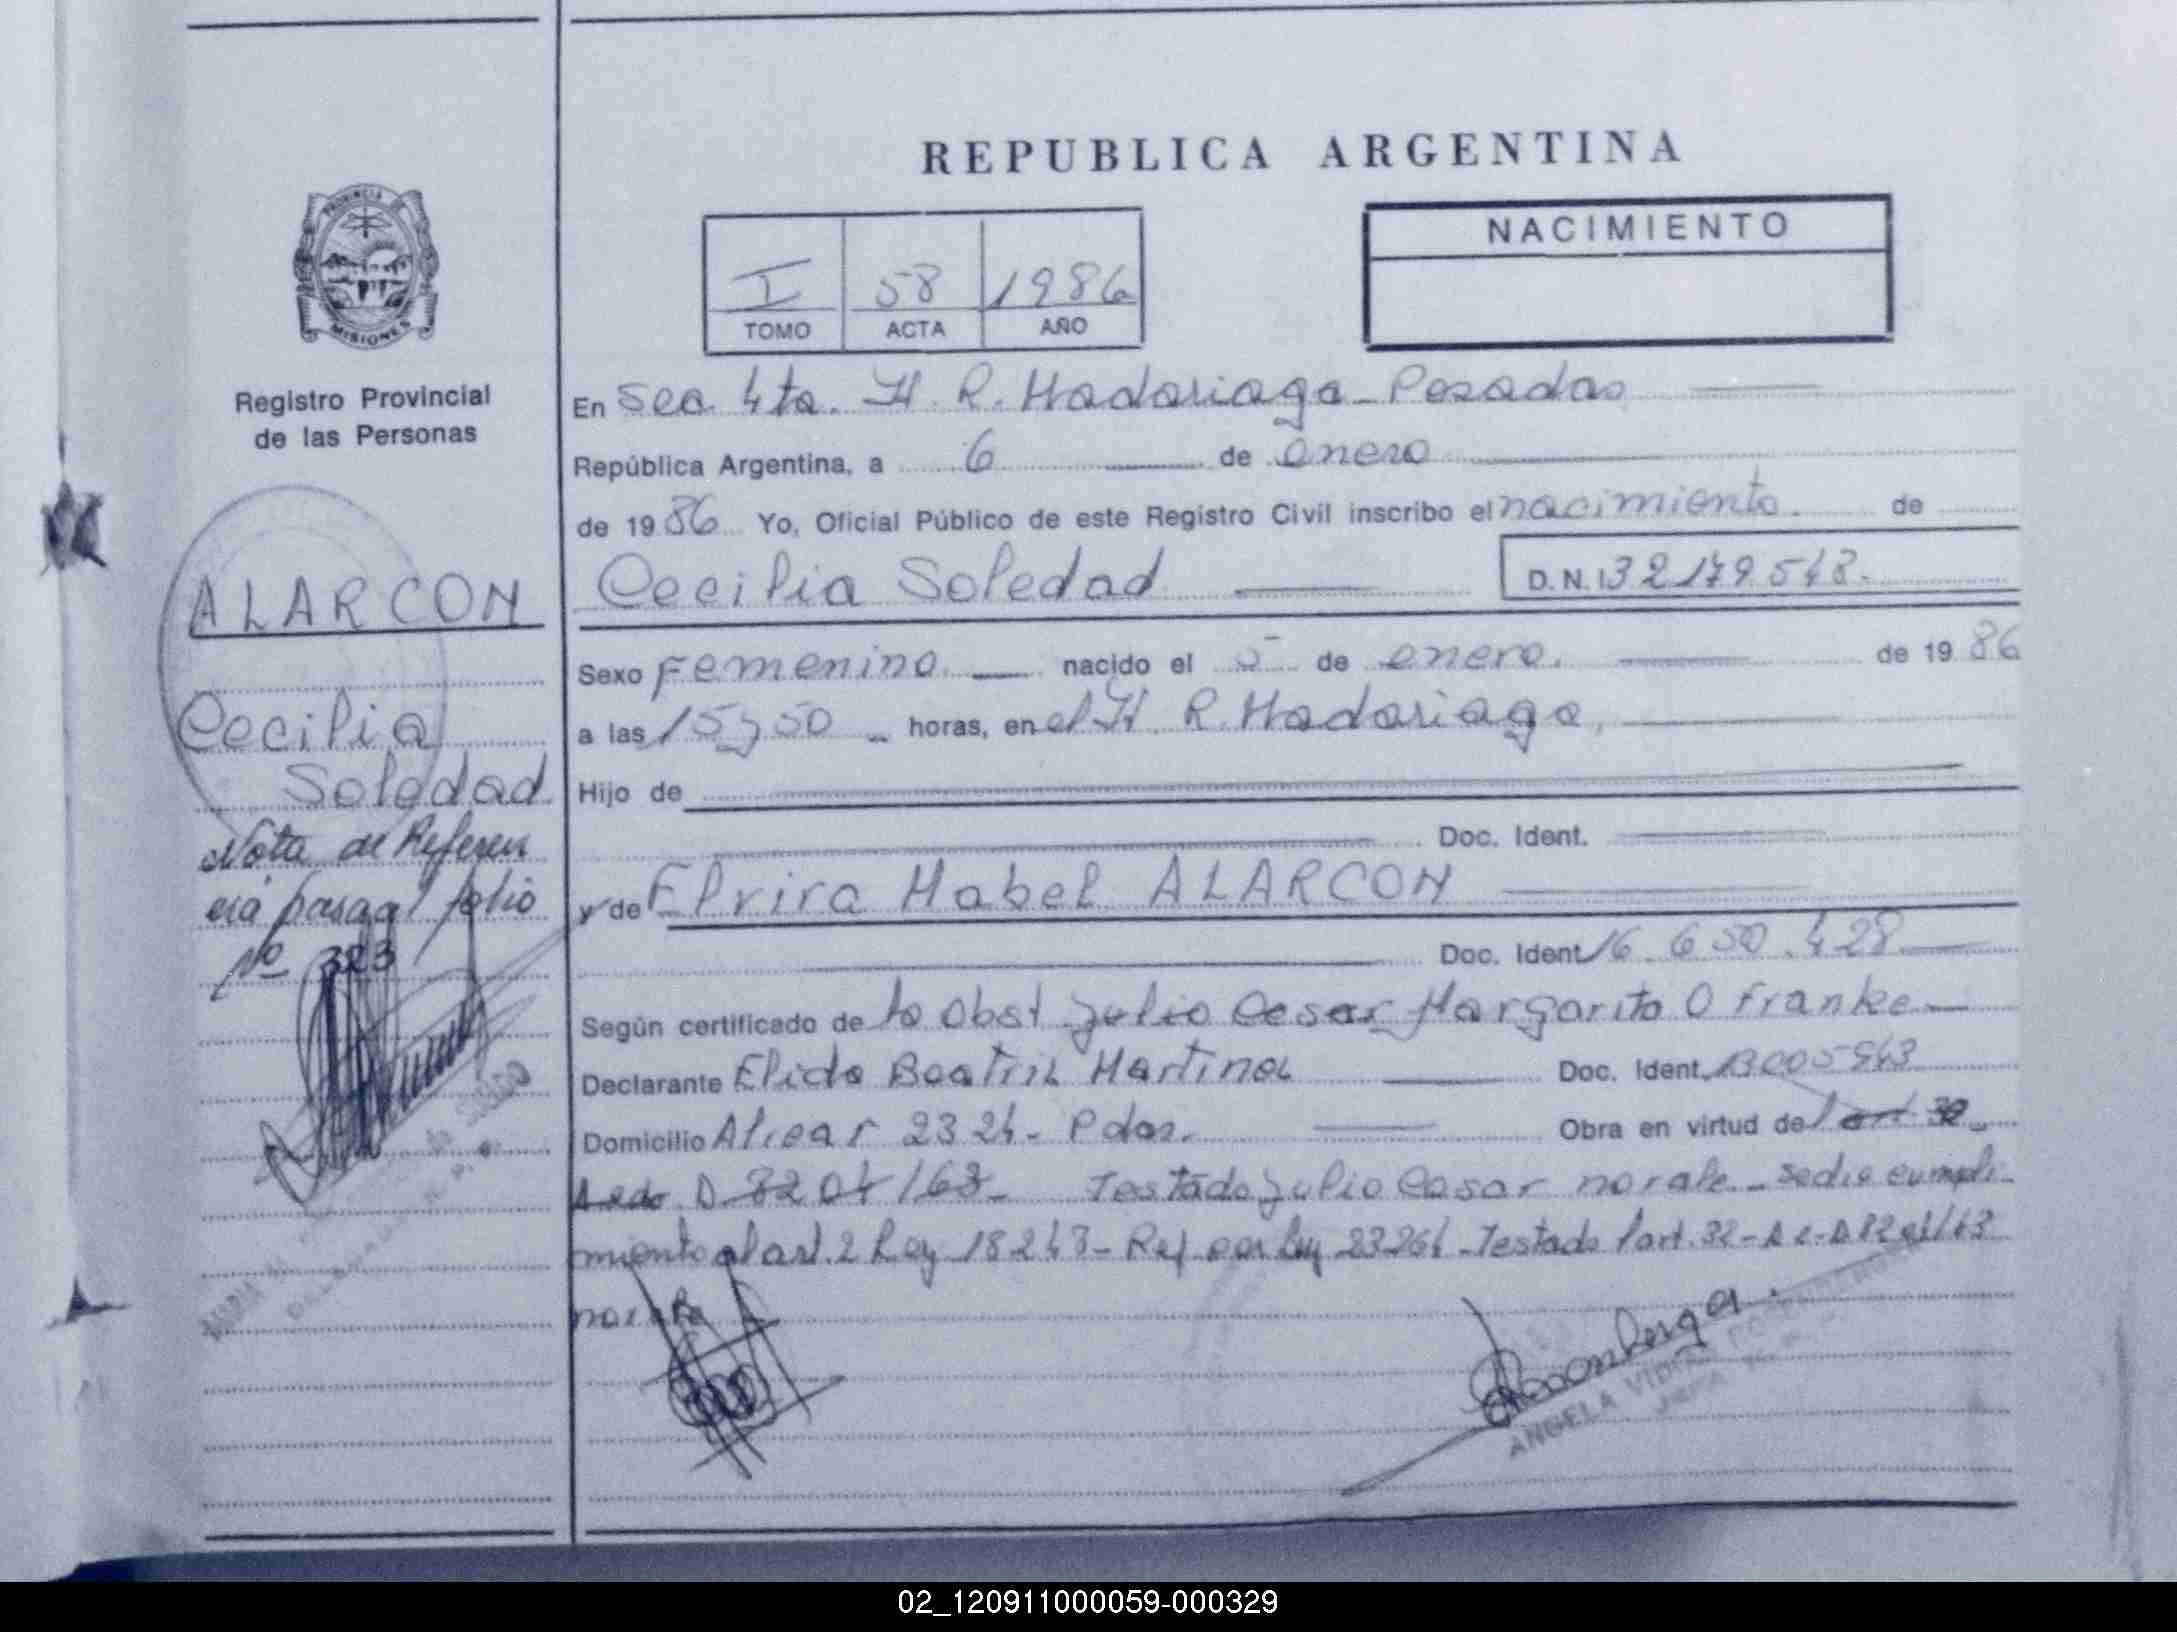 REPUBLICA ARGENTINA
NACIMIENTO
I 58 1986
TOMO ACTA AÑO
PROVINCIA DE
MISIONES
Registro Provincial
de las Personas
ALARCON
Cecilia
Soledad
Nota de Referen
cia pasa al folio
Nº 323
En Sec. 4ta. H. R. Madariaga - Posadas
República Argentina, a 6 de enero
de 1986 Yo, Oficial Público de este Registro Civil inscribo el nacimiento. de
Cecilia Soledad D.N.I 32179.548.
Sexo Femenino nacido el 5 de enero. de 1986
a las 15y50 horas, en el H. R. Madariaga,
Hijo de
Doc. Ident.
y de Elvira Mabel ALARCON
Doc. Ident 16.650.428
Según certificado de la Obst Julio Cesar Margarita O Franke
Declarante Elida Beatriz Martinez Doc. Ident.
Domicilio Alvear 2324 - Pdas. Obra en virtud de l art 32
D 8204/63 - Testado Julio Cesar no vale - se dio cumpli-
miento al art. 2 Ley 18248 - Ref por ley 23264 - Testado l art. 32 - D 8204/63
no vale
ANGELA
02_120911000059-000329